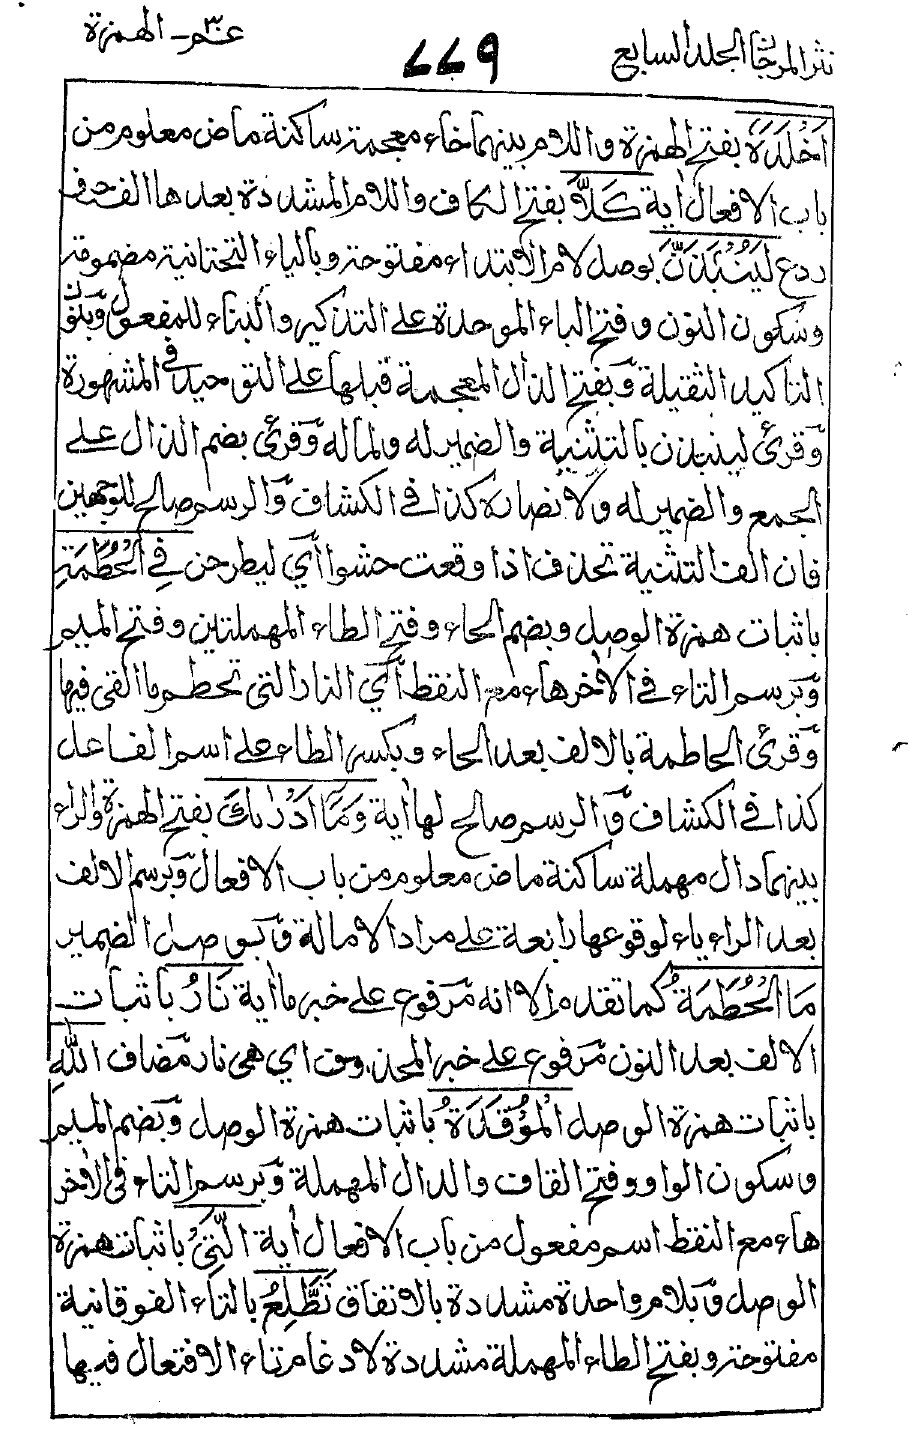 نثر المرجان الجلد السابع
٧٧٩
عم ٣٠ - الهمزة
اَخْلَدَهٗ بفتح الهمزة واللام بينهما خاء معجمة ساكنة ماض معلوم من
باب الافعال اٰية كَلَّا بفتح الكاف واللام المشددة بعدها الف حرف
ردع لَيُنْۢبَذَنَّ بوصل لام الابتداء مفتوحة وبالياء التحتانية مضمومة
وسكون النون وفتح الباء الموحدة على التذكير والبناء للمفعول وبنون
التاكيد الثقيلة وبفتح الذال المعجمة قبلها على التوحيد في المشهورة
وقرئ لينبذن بالتثنية والضمير له ولماله وقرئ بضم الذال على
الجمع والضمير له ولانصاره كذا في الكشاف والرسم صالح للوجهين
فان الف التثنية تحذف اذا وقعت حشوا اي ليطرحن فِي الْحُطَمَةِ
باثبات همزة الوصل وبضم الحاء وفتح الطاء المهملتين وفتح الميم
وبرسم التاء في الاٰخر هاء مع النقط اي النار التي تحطم ما القي فيها
وقرئ الحاطمة بالالف بعد الحاء وبكسر الطاء على اسم الفاعل
كذا في الكشاف والرسم صالح لها اٰية وَمَآ اَدْرٰىكَ بفتح الهمزة والراء
بينهما دال مهملة ساكنة ماض معلوم من باب الافعال وبرسم الالف
بعد الراء ياء لوقوعها رابعة على مراد الامالة وبوصل الضمير
مَا الْحُطَمَةُ كما تقدم الا انه مرفوع على خبر ما اٰية نَارُ باثبات
الالف بعد النون مرفوع على خبر المحذوف اي هي نار مضاف اللّٰهِ
باثبات همزة الوصل الْمُوْقَدَةُ باثبات همزة الوصل وبضم الميم
وسكون الواو وفتح القاف والدال المهملة وبرسم التاء في الاٰخر
هاء مع النقط اسم مفعول من باب الافعال اٰية الَّتِيْ باثبات همزة
الوصل وبلام واحدة مشددة بالاتفاق تَطَّلِعُ بالتاء الفوقانية
مفتوحة وبفتح الطاء المهملة مشددة لادغام تاء الافتعال فيها